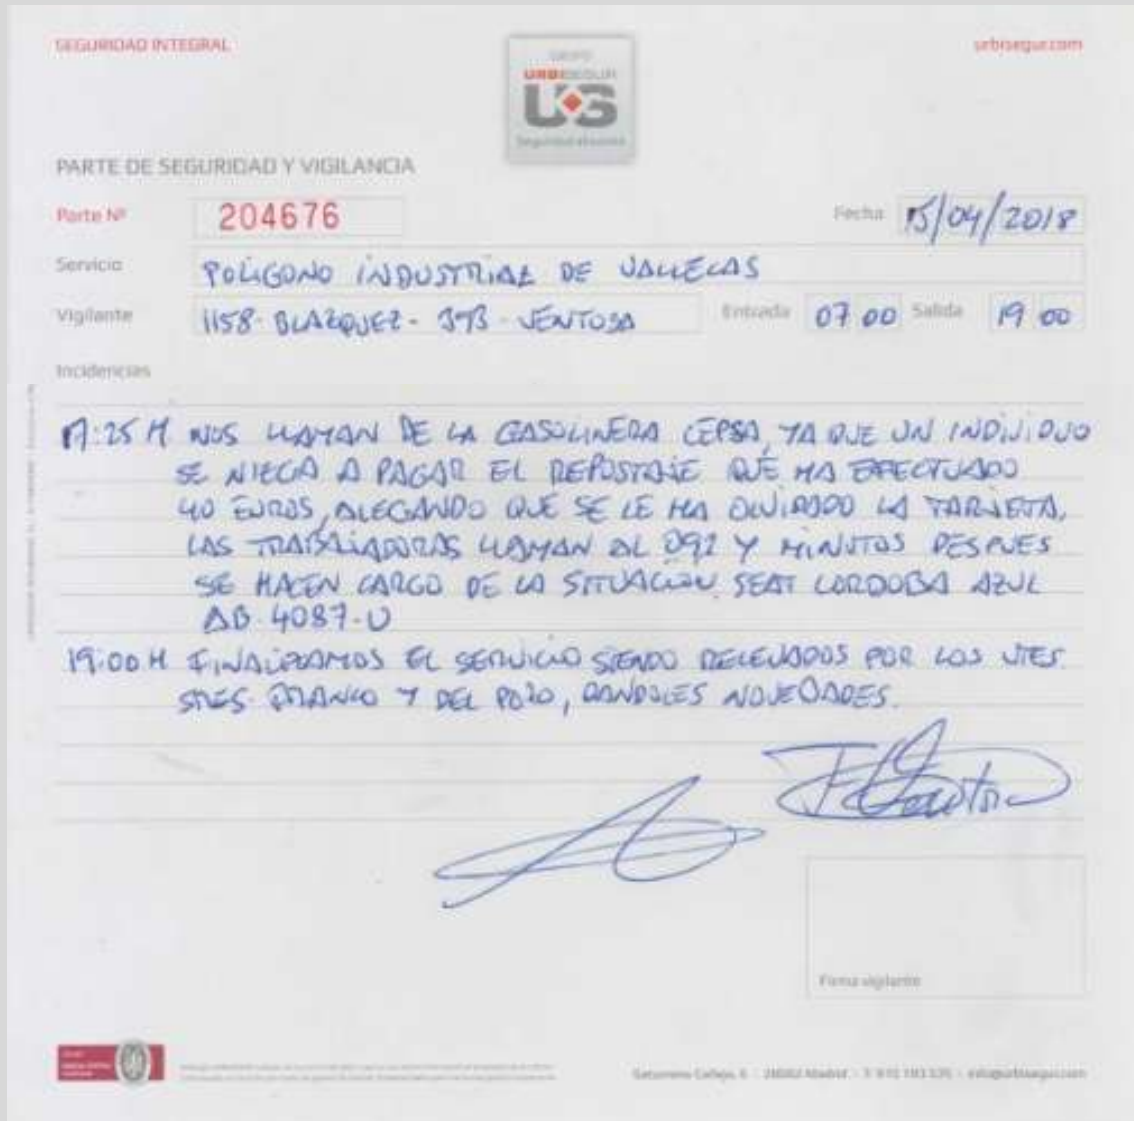 SEGURIDAD INTEGRAL
urbisegur.com
GRUPO
URBISEGUR
US
PARTE DE SEGURIDAD Y VIGILANCIA
Parte Nº 204676
Fecha 15/04/2018
Servicio POLIGONO INDUSTRIAL DE VALLECAS
Vigilante 1158-BLAZQUEZ- 393-VENTOSA Entrada 07 00 Salida 19 00
Incidencias
17:25 H NOS LLAMAN DE LA GASOLINERA CEPSA, YA QUE UN INDIVIDUO
SE NIEGA A PAGAR EL REPOSTAJE QUE HA EFECTUADO
40 EUROS, ALEGANDO QUE SE LE HA OLVIDADO LA TARJETA,
LAS TRABAJADORAS LLAMAN AL 092 Y MINUTOS DESPUES
SE HACEN CARGO DE LA SITUACION. SEAT CORDOBA AZUL
AB-4087-U
19:00 H FINALIZAMOS EL SERVICIO SIENDO RELEVADOS POR LOS VTES
SRES. FRANCO Y DEL POZO, DANDOLES NOVEDADES.
Firma vigilante